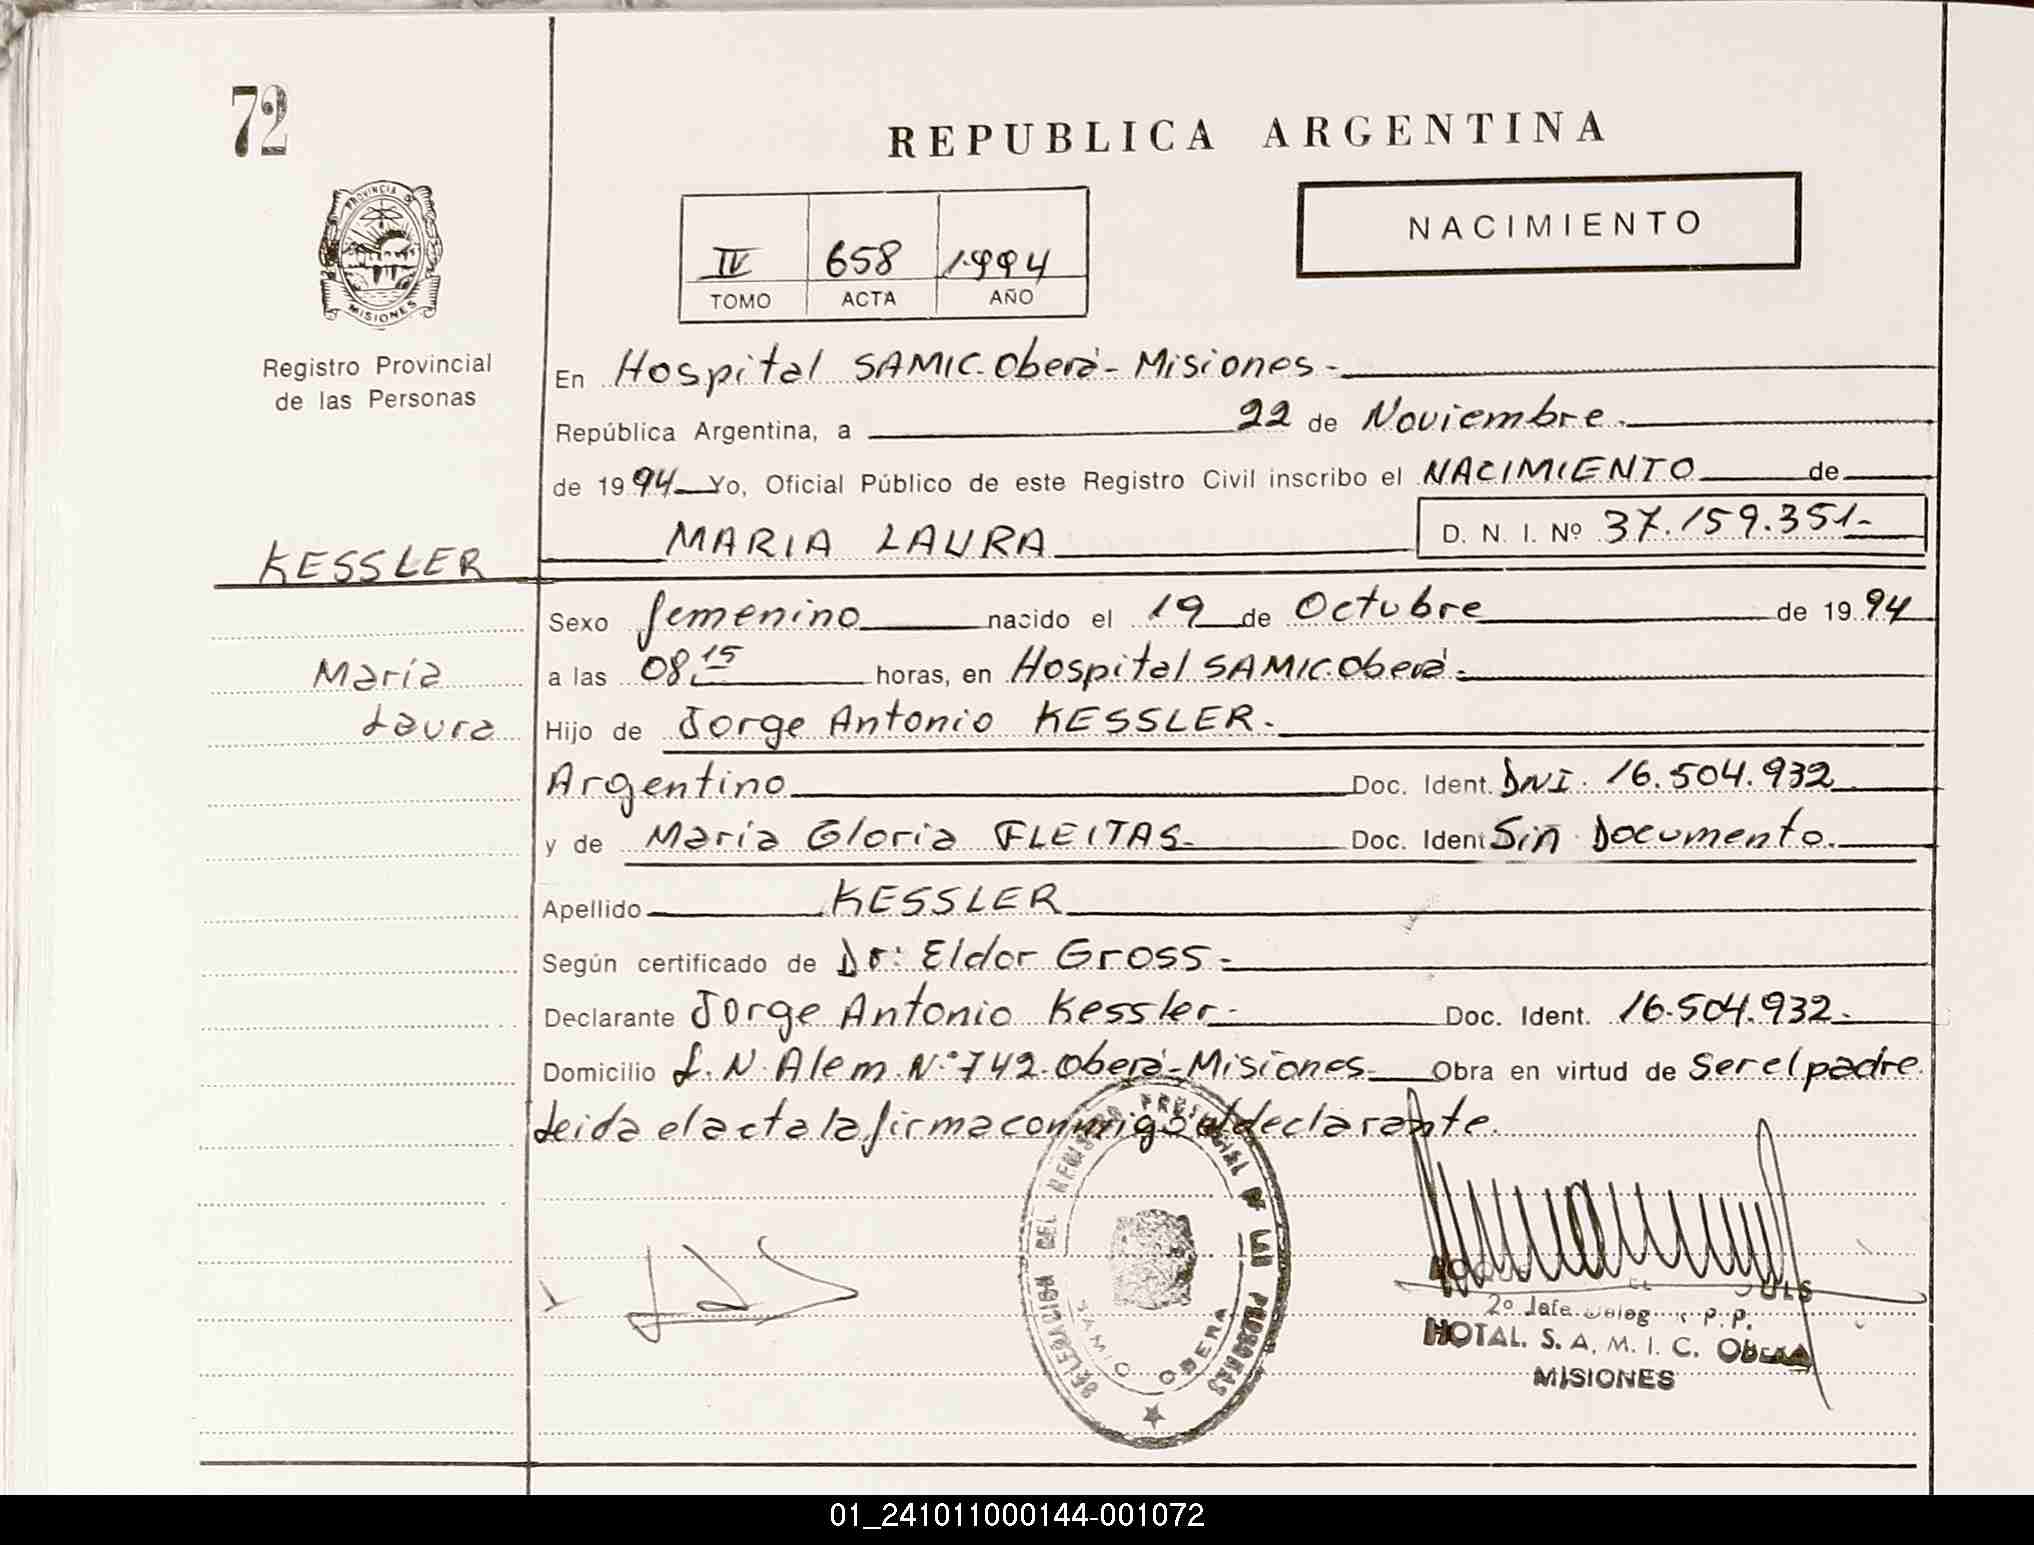 72
REPUBLICA ARGENTINA
PROVINCIA DE
MISIONES
NACIMIENTO
IV 658 1994
TOMO ACTA AÑO
Registro Provincial
de las Personas
En Hospital SAMIC. Oberá - Misiones -
República Argentina, a 22 de Noviembre.
de 1994 Yo, Oficial Público de este Registro Civil inscribo el NACIMIENTO de
MARIA LAURA D. N. I. Nº 37.159.351-
KESSLER
Sexo femenino nacido el 19 de Octubre de 1994
María
Laura
a las 08 15 horas, en Hospital SAMIC. Oberá.
Hijo de Jorge Antonio KESSLER.
Argentino Doc. Ident. DNI. 16.504.932
y de María Gloria FLEITAS. Doc. Ident Sin Documento.
Apellido KESSLER
Según certificado de Dr: Eldor Gross.
Declarante Jorge Antonio Kessler. Doc. Ident. 16.504.932.
Domicilio L. N. Alem. Nº 742. Oberá - Misiones. Obra en virtud de Ser el padre.
Leida el acta la firma conmigo el declarante.
DELEGACION DEL REGISTRO PROVINCIAL DE LAS PERSONAS
SAMIC OBERA
2º Jefe P. P.
HOTAL. S. A. M. I. C. OBERA
MISIONES
01_241011000144-001072